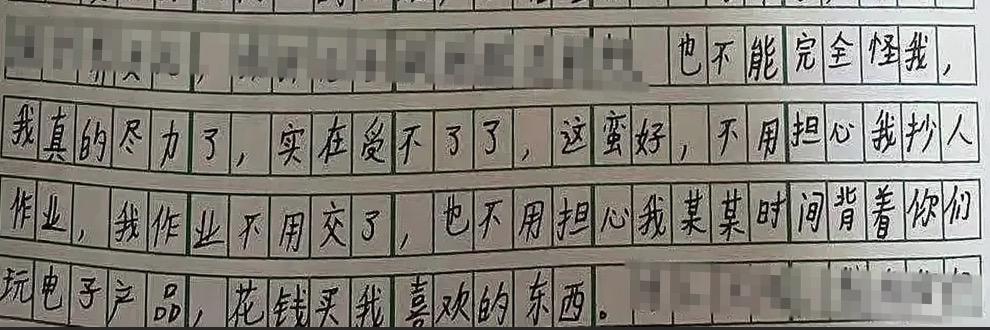 也不能完全怪我，
我真的尽力了，实在受不了了，这蛮好，不用担心我抄人
作业，我作业不用交了，也不用担心我某某时间背着你们
玩电子产品，花钱买我喜欢的东西。